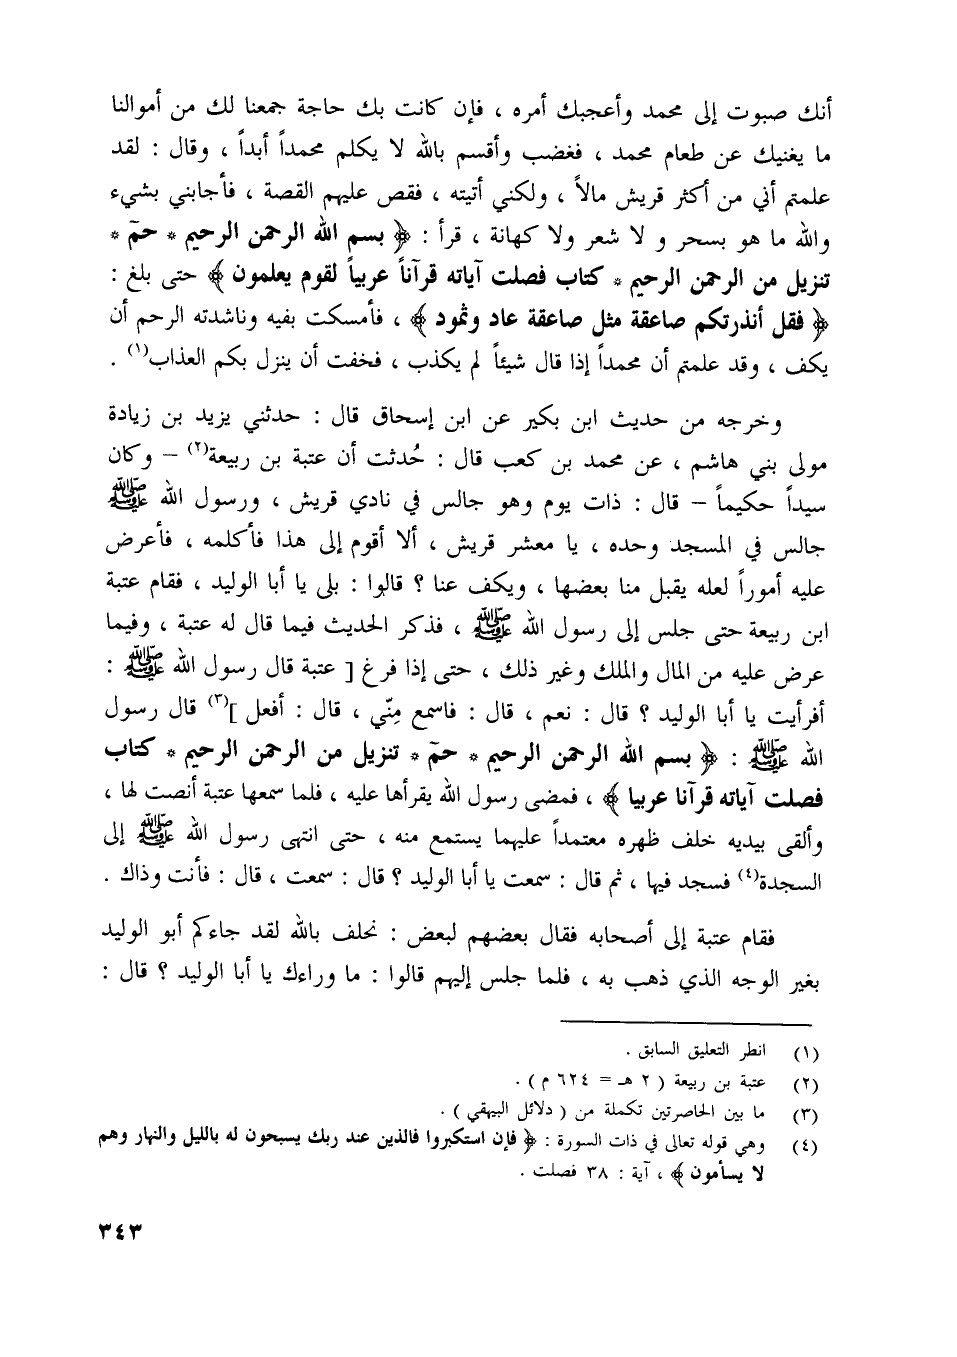 أنك صبوت إلى محمد وأعجبك أمره ، فإن كانت بك حاجة جمعنا لك من أموالنا
ما يغنيك عن طعام محمد ، فغضب وأقسم بالله لا يكلم محمداً أبداً ، وقال : لقد
علمتم أني من أكثر قريش مالاً ، ولكني أتيته ، فقص عليهم القصة ، فأجابني بشيء
والله ما هو بسحر و لا شعر ولا كهانة ، قرأ : ﴿ بسم الله الرحمن الرحيم * حمٓ *
تنزيل من الرحمن الرحيم * كتاب فصلت آياته قرآناً عربياً لقوم يعلمون ﴾ حتى بلغ :
﴿ فقل أنذرتكم صاعقة مثل صاعقة عاد وثمود ﴾ ، فأمسكت بفيه وناشدته الرحم أن
يكف ، وقد علمتم أن محمداً إذا قال شيئاً لم يكذب ، فخفت أن ينزل بكم العذاب(١) .
وخرجه من حديث ابن بكير عن ابن إسحاق قال : حدثني يزيد بن زيادة
مولى بني هاشم ، عن محمد بن كعب قال : حُدثت أن عتبة بن ربيعة(٢) – وكان
سيداً حكيماً – قال : ذات يوم وهو جالس في نادي قريش ، ورسول الله ﷺ
جالس في المسجد وحده ، يا معشر قريش ، ألا أقوم إلى هذا فأكلمه ، فأعرض
عليه أموراً لعله يقبل منا بعضها ، ويكف عنا ؟ قالوا : بلى يا أبا الوليد ، فقام عتبة
ابن ربيعة حتى جلس إلى رسول الله ﷺ ، فذكر الحديث فيما قال له عتبة ، وفيما
عرض عليه من المال والملك وغير ذلك ، حتى إذا فرغ [ عتبة قال رسول الله ﷺ :
أفرأيت يا أبا الوليد ؟ قال : نعم ، قال : فاسمع مِنّي ، قال : أفعل ](٣) قال رسول
الله ﷺ : ﴿ بسم الله الرحمن الرحيم * حمٓ * تنزيل من الرحمن الرحيم * كتاب
فصلت آياته قرآنا عربيا ﴾ ، فمضى رسول الله يقرأها عليه ، فلما سمعها عتبة أنصت لها ،
وألقى بيديه خلف ظهره معتمداً عليهما يستمع منه ، حتى انتهى رسول الله ﷺ إلى
السجدة(٤) فسجد فيها ، ثم قال : سمعت يا أبا الوليد ؟ قال : سمعت ، قال : فأنت وذاك .
فقام عتبة إلى أصحابه فقال بعضهم لبعض : نحلف بالله لقد جاءكم أبو الوليد
بغير الوجه الذي ذهب به ، فلما جلس إليهم قالوا : ما وراءك يا أبا الوليد ؟ قال :
(١) انظر التعليق السابق .
(٢) عتبة بن ربيعة ( ٢ هـ = ٦٢٤ م ) .
(٣) ما بين الحاصرتين تكملة من ( دلائل البيهقي ) .
(٤) وهي قوله تعالى في ذات السورة : ﴿ فإن استكبروا فالذين عند ربك يسبحون له بالليل والنهار وهم
لا يسأمون ﴾ ، آية : ٣٨ فصلت .
٣٤٣